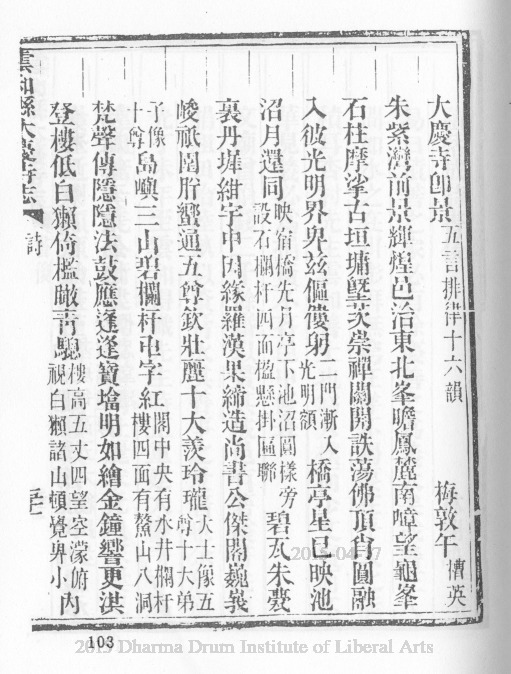 大慶寺卽景五言排律十六韻 梅敦午槽英
朱紫灣前景輝煌邑治東北峯瞻鳳麓南嶂望龜峯
石柱摩挲古垣墉曁茨崇禪關開詄蕩佛頂肖圓融
入彼光明界界茲傴僂躬二門漸入光明額橋亭星已映池
沼月還同映宿橋先月亭下池沼圓樣旁設石欄杆四面檻懸掛匾聯碧瓦朱甍
裏丹墀紺宇中因緣羅漢果締造尚書公傑閣巍峩
峻祇園肸蠁通五尊欽壯麗十大羨玲瓏大士像五尊十大弟
子像十尊島嶼三山碧欄杆卍字紅閣中央有水井欄杆樓四面有鰲山八洞
梵聲傳隱隱法鼓應逢逢寶墖明如繪金鐘響更淇
登樓低白獺倚檻瞰靑驄樓高五丈四望空濛俯視白獺諸山頓覺卑小內
雲和縣大慶寺志 詩
103
2013 Dharma Drum Institute of Liberal Arts